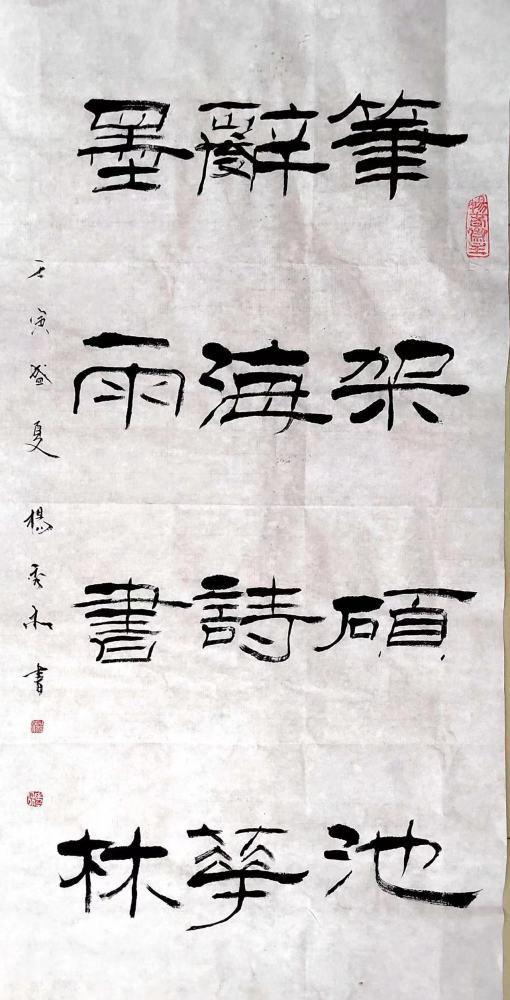 筆架碩池
辭海詩華
墨雨書林
壬寅盛夏 楊秀和書